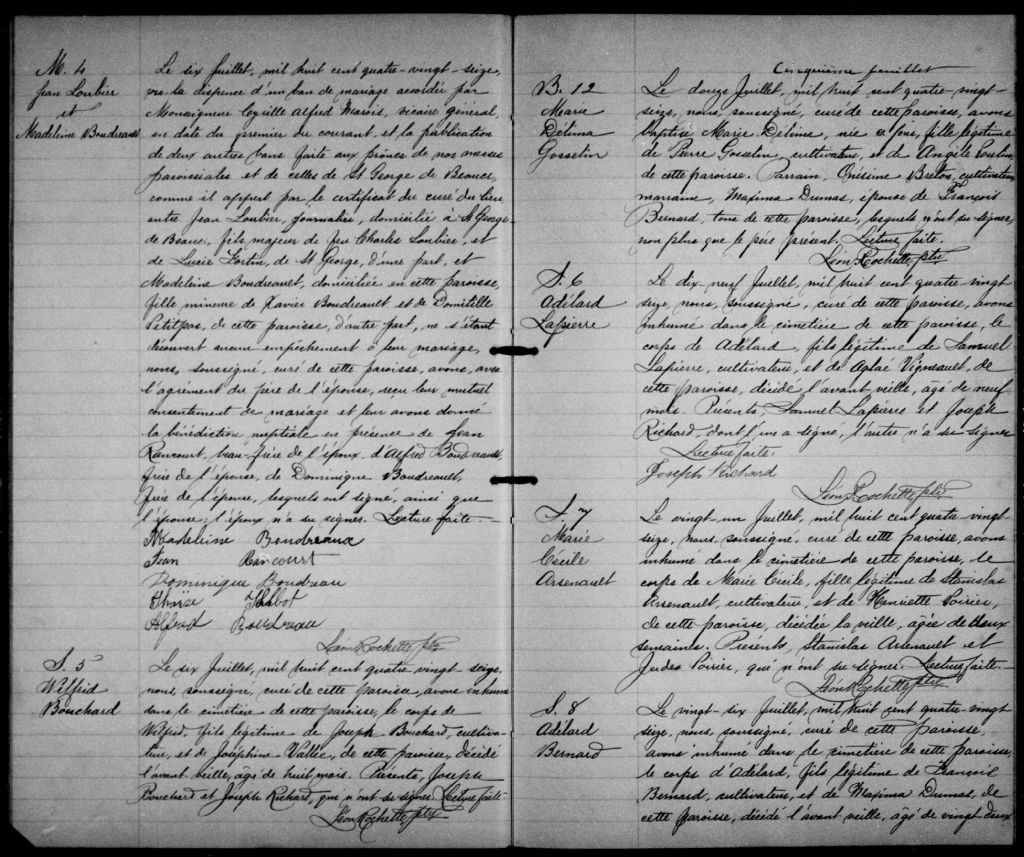 M. 4
Jean Loubier
et
Madeleine Boudreault
Le six Juillet, mil huit cent quatre-vingt-seize,
vu la dispense d'un ban de mariage accordée par
Monseigneur Cyrille Alfred Marois, vicaire général,
en date du premier du courant, et la publication
de deux autres bans faite aux prônes de nos messes
paroissiales et de celles de St George de Beauce,
comme il appert par le certificat du curé du lieu
entre Jean Loubier, journalier, domicilié à St George
de Beauce, fils majeur de feu Charles Loubier, et
de Lucie Fortin, de St George, d'une part, et
Madeleine Boudreault, domiciliée en cette paroisse,
fille mineure de Xavier Boudreault et de Domitille
Petitpas, de cette paroisse, d'autre part, ne s'étant
découvert aucun empêchement à leur mariage,
nous, soussigné, curé de cette paroisse, avons, avec
l'agrément du père de l'épouse, reçu leur mutuel
consentement de mariage et leur avons donné
la bénédiction nuptiale en présence de Jean
Rancourt, beau-frère de l'époux, d'Alfred Boudreault,
frère de l'épouse, de Dominique Boudreault,
frère de l'épouse, lesquels ont signé, ainsi que
l'épouse; l'époux n'a su signer. Lecture faite.
Madeleine Boudreaux
Jean Rancourt
Dominique Boudreau
Talbot
Alfred Boudreau
Léon Rochette ptre
S. 5
Wilfrid
Bouchard
Le six Juillet, mil huit cent quatre-vingt seize,
nous, soussigné, curé de cette paroisse, avons inhumé
dans le cimetière de cette paroisse, le corps de
Wilfrid, fils légitime de Joseph Bouchard, cultiva-
teur, et de Joséphine Vallée, de cette paroisse, décédé
l'avant veille, âgé de huit mois. Présents, Joseph
Bouchard et Joseph Richard, qui n'ont su signer. Lecture faite.
Léon Rochette ptre
Cinquième feuillet
B. 12
Marie
Délima
Gosselin
Le douze Juillet, mil huit cent quatre vingt-
seize, nous, soussigné, curé de cette paroisse, avons
baptisé Marie Délima, née ce jour, fille légitime
de Pierre Gosselin, cultivateur, et de Angèle Poulin,
de cette paroisse. Parrain, Onésime Breton, cultivateur,
marraine, Maxima Dumas, épouse de François
Bernard, tous de cette paroisse, lesquels n'ont su signer,
non plus que le père présent. Lecture faite.
Léon Rochette ptre
S. 6
Adélard
Lapierre
Le dix neuf Juillet, mil huit cent quatre vingt
seize, nous, soussigné, curé de cette paroisse, avons
inhumé dans le cimetière de cette paroisse, le
corps de Adélard, fils légitime de Samuel
Lapierre, cultivateur, et de Aglaé Vigneault, de
cette paroisse, décédé l'avant veille, âgé de neuf
mois. Présents, Samuel Lapierre et Joseph
Richard, dont l'un a signé, l'autre n'a su signer.
Lecture faite.
Joseph Richard
Léon Rochette ptre
S. 7
Marie
Cécile
Arsenault
Le vingt un Juillet, mil huit cent quatre vingt-
seize, nous, soussigné, curé de cette paroisse, avons
inhumé dans le cimetière de cette paroisse, le
corps de Marie Cécile, fille légitime de Stanislas
Arsenault, cultivateur, et de Henriette Poirier,
de cette paroisse, décédée la veille, agée de deux
semaines. Présents, Stanislas Arsenault et
Judes Poirier, qui n'ont su signer. Lecture faite.
Léon Rochette ptre
S. 8
Adélard
Bernard
Le vingt-six Juillet, mil huit cent quatre vingt
seize, nous, soussigné, curé de cette paroisse,
avons inhumé dans le cimetière de cette paroisse
le corps d'Adélard, fils légitime de François
Bernard, cultivateur, et de Maxima Dumas, de
cette paroisse, décédé l'avant veille, âgé de vingt deux